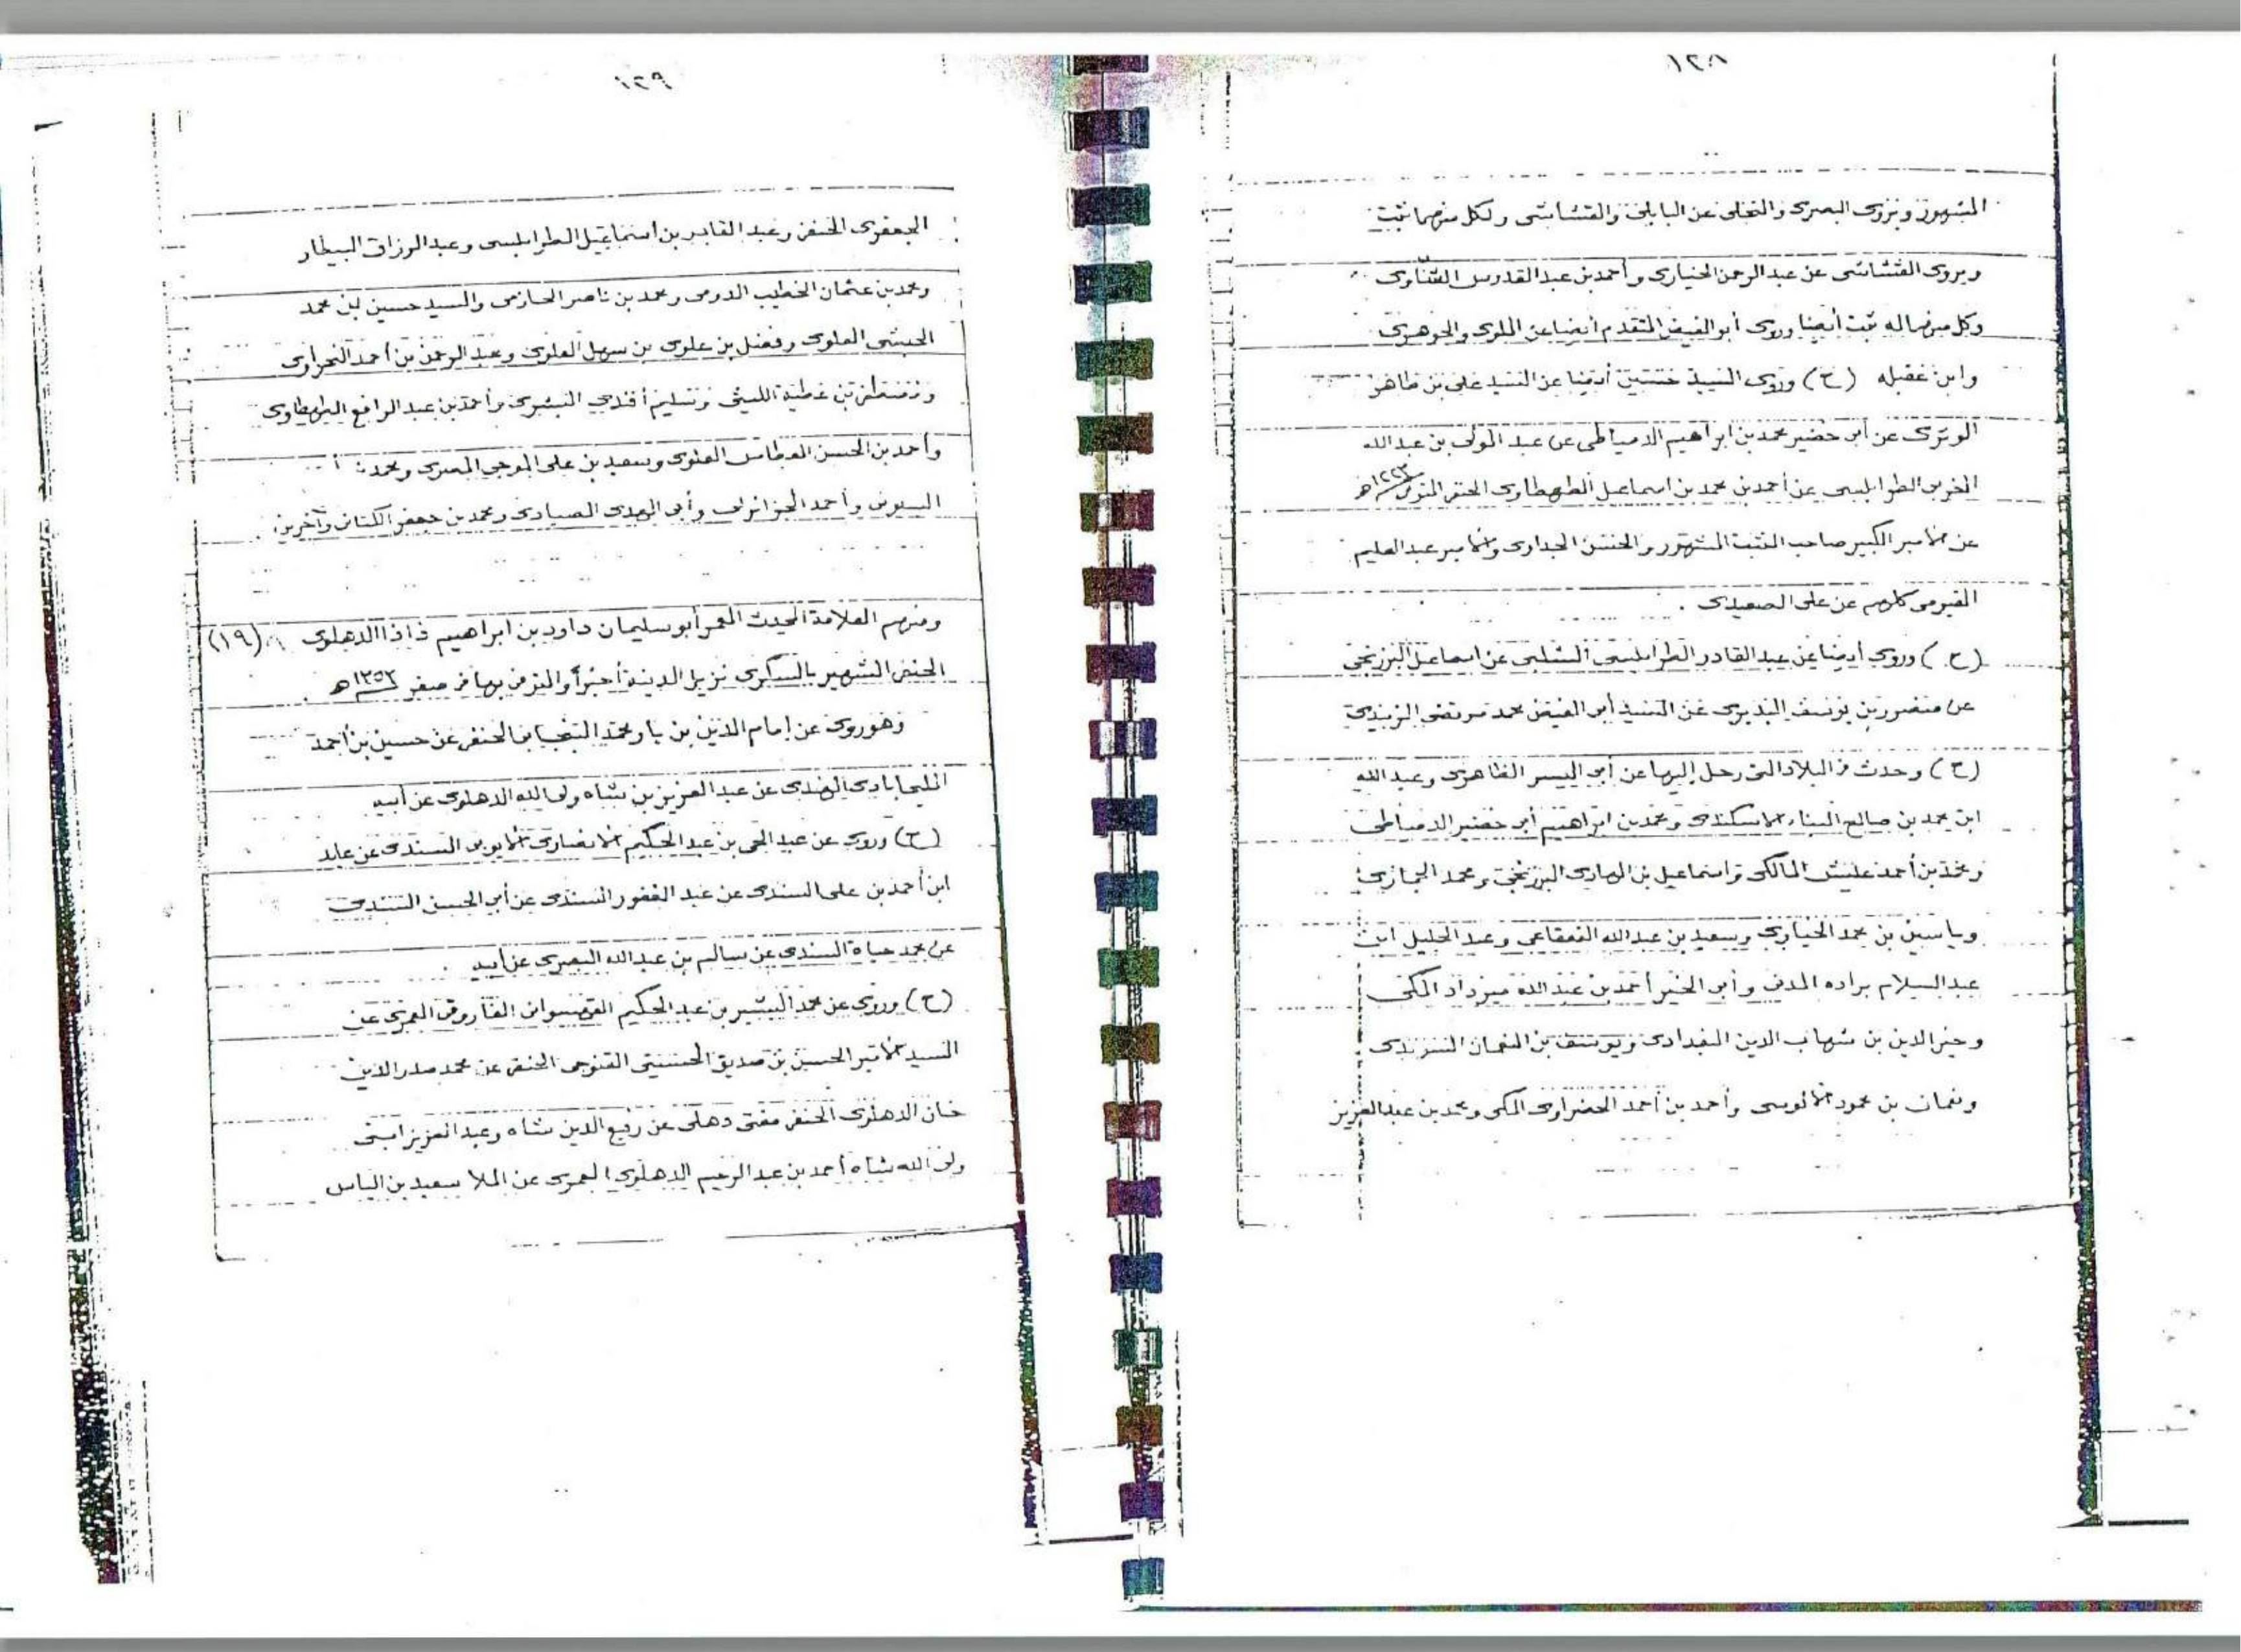 ١٢٨
المشهور ويروى البصرى والنخلى عن البابلى والقشاشى ولكل منهما ثبت
ويروى القشاشى عن عبد الرحمن الخيارى وأحمد بن عبد القدوس الشناوى
وكل منهما له ثبت أيضا وروى أبو الفيض المتقدم أيضا عن الملوى والجوهرى
وابن عقيله (ح) وروى السيد حسين أيضا عن السيد على بن ظاهر
الوترى عن أبى خضير محمد بن ابراهيم الدمياطى عن عبد المولى بن عبد الله
المغربى الطرابلسى عن أحمد بن محمد بن اسماعيل الطهطاوى الحنفى المتوفى
عن الأمير الكبير صاحب الثبت المشهور والحسن الجداوى والأمير عبد العليم
الفيومى كلهم عن على الصعيدى .
(ح) وروى أيضا عن عبد القادر الطرابلسى الشلبى عن اسماعيل البرزنجى
عن منصور بن يوسف البديرى عن السيد أبى الفيض محمد مرتضى الزبيدى
(ح) وحدث فى البلاد التى رحل إليها عن أبى اليسر الظاهرى وعبد الله
ابن محمد بن صالح البناء الاسكندرى ومحمد بن ابراهيم أبى خضير الدمياطى
ومحمد بن أحمد عليش المالكى واسماعيل بن الهادى البرزنجى ومحمد الجمازى
وياسين بن محمد الخيارى وسعيد بن عبد الله القعقاعى وعبد الجليل ابن
عبد السلام براده المدنى وأبى الخير أحمد بن عبد الله ميرداد المكى
وخير الدين بن شهاب الدين البغدادى ويوسف بن النعمان السويدى
ونعمان بن محمود الألوسى وأحمد بن أحمد الحضراوى المكى ومحمد بن عبد العزيز
١٢٩
الجعفرى الحنفى وعبد القادر بن اسماعيل الطرابلسى وعبد الرزاق البيطار
ومحمد بن عثمان الخطيب الدومى ومحمد بن ناصر الحازمى والسيد حسين بن محمد
الحبشى العلوى وفضل بن علوى بن سهل العلوى وعبد الرحمن بن أحمد النحراوى
ومصطفى بن عطية الليثى وسليم أفندى البشرى وأحمد بن عبد الرافع الطهطاوى
وأحمد بن الحسن العطاس العلوى وسعيد بن على الموجى المصرى ومحمد
وأحمد الجزائرلى وأبى الهدى الصيادى ومحمد بن جعفر الكتانى وآخرين .
ومنهم العلامة المحدث المعمر أبو سليمان داود بن ابراهيم ذاذا الدهلوى (١٩)
الحنفى الشهير بالسكرى نزيل المدينة أخيرا والمتوفى بها فى صفر ١٣٥٢ه
وهو روى عن إمام الدين بن يار محمد البنجابى الحنفى عن حسين بن أحمد
المليحابادى الهندى عن عبد العزيز بن شاه ولى الله الدهلوى عن أبيه
(ح) وروى عن عبد الحى بن عبد الحكيم الانصارى الأيوبى السندى عن عابد
ابن أحمد بن على السندى عن عبد الغفور السندى عن أبى الحسن السندى
عن محمد حياة السندى عن سالم بن عبد الله البصرى عن أبيه
(ح) وروى عن محمد البشير بن عبد الحكيم الفاروقى العمرى عن
السيد الأمير الحسن بن صديق الحسينى القنوجى الحنفى عن محمد صدر الدين
خان الدهلوى الحنفى مفتى دهلى عن رفيع الدين شاه وعبد العزيز ابنى
ولى الله شاه أحمد بن عبد الرحيم الدهلوى العمرى عن الملا سعيد بن الياس